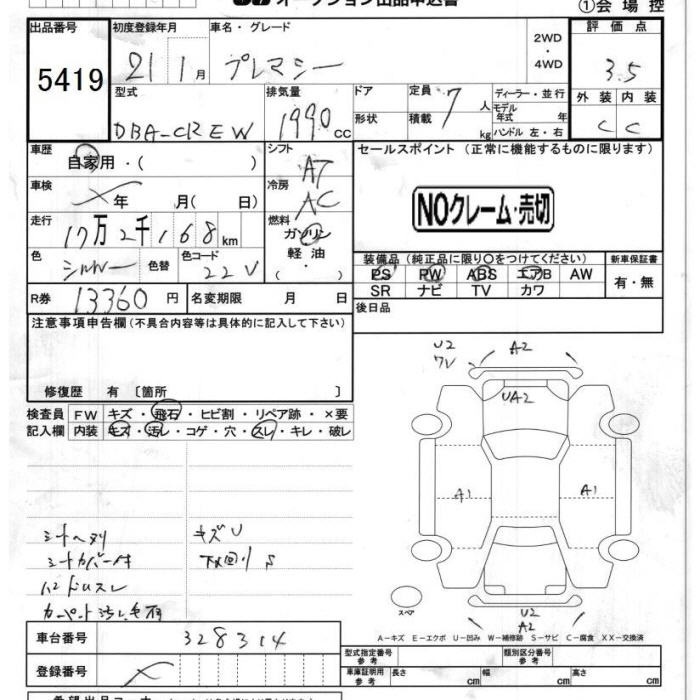 オークション出品申込書
①会場控
出品番号
5419
初度登録年月
21 1月
車名・グレード
プレマシー
2WD
・
4WD
評価点
3.5
外装 内装
C C
型式
DBA-CREW
排気量
1990 cc
ドア
形状
定員 7人
積載 kg
ディーラー・並行
モデル年式 年
ハンドル 左・右
車歴
自家用・( )
シフト
AT
セールスポイント (正常に機能するものに限ります)
NOクレーム・売切
車検
年 月( 日)
冷房
AC
走行
17万2千168km
燃料
ガソリン
軽油
( )
色
シルバー
色替
色コード
22V
装備品 (純正品に限り○をつけてください)
新車保証書
PS PW ABS エアB AW
SR ナビ TV カワ
有・無
R券 13360円
名変期限 月 日
後日品
注意事項申告欄(不具合内容等は具体的に記入して下さい)
修復歴 有〔箇所 〕
検査員 FW キズ・飛石・ヒビ割・リペア跡・×要
記入欄 内装 キズ・汚レ・コゲ・穴・スレ・キレ・破レ
U2
A2
UA2
A1
A1
シートヘタリ
キズU
シートカバー付
下回りS
スペア
U2
A2
A−キズ E−エクボ U−凹み W−補修跡 S−サビ C−腐食 XX−交換済
車台番号
328314
登録番号
型式指定番号
参考
類別区分番号
参考
車庫証明用
参考
長さ cm
幅 cm
高さ cm